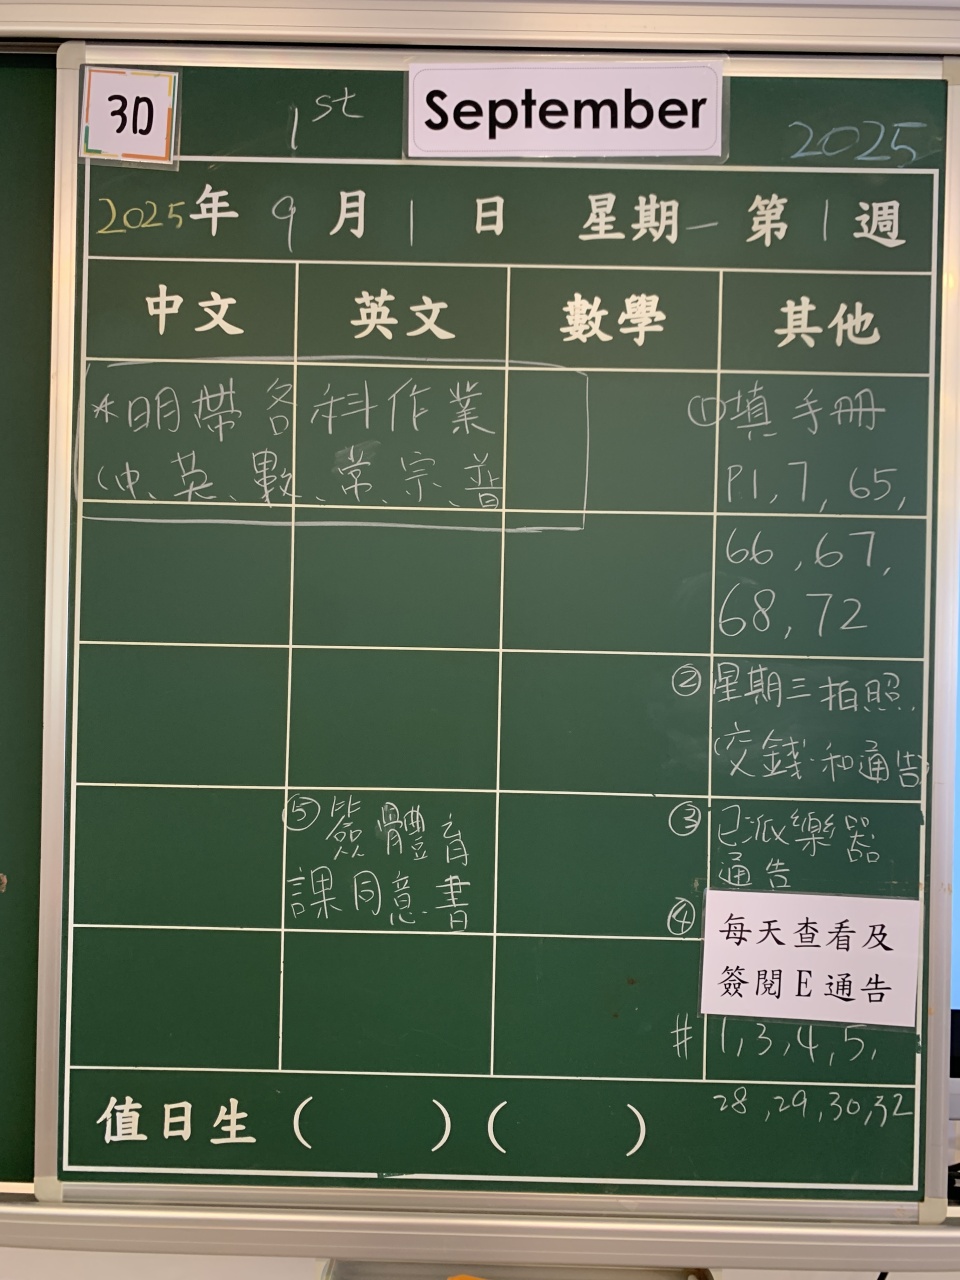 3D
1st
September
2025
2025年9月1日 星期一 第1週
中文 英文 數學 其他
*明帶各科作業
(中、英、數、常、宗、普
①填手冊
P.1, 7, 65,
66, 67,
68, 72
②星期三拍照
(交錢和通告
③已派樂器
通告
④每天查看及
簽閱E通告
# 1, 3, 4, 5,
28, 29, 30, 32
⑤簽體育
課同意書
值日生 ( ) ( )